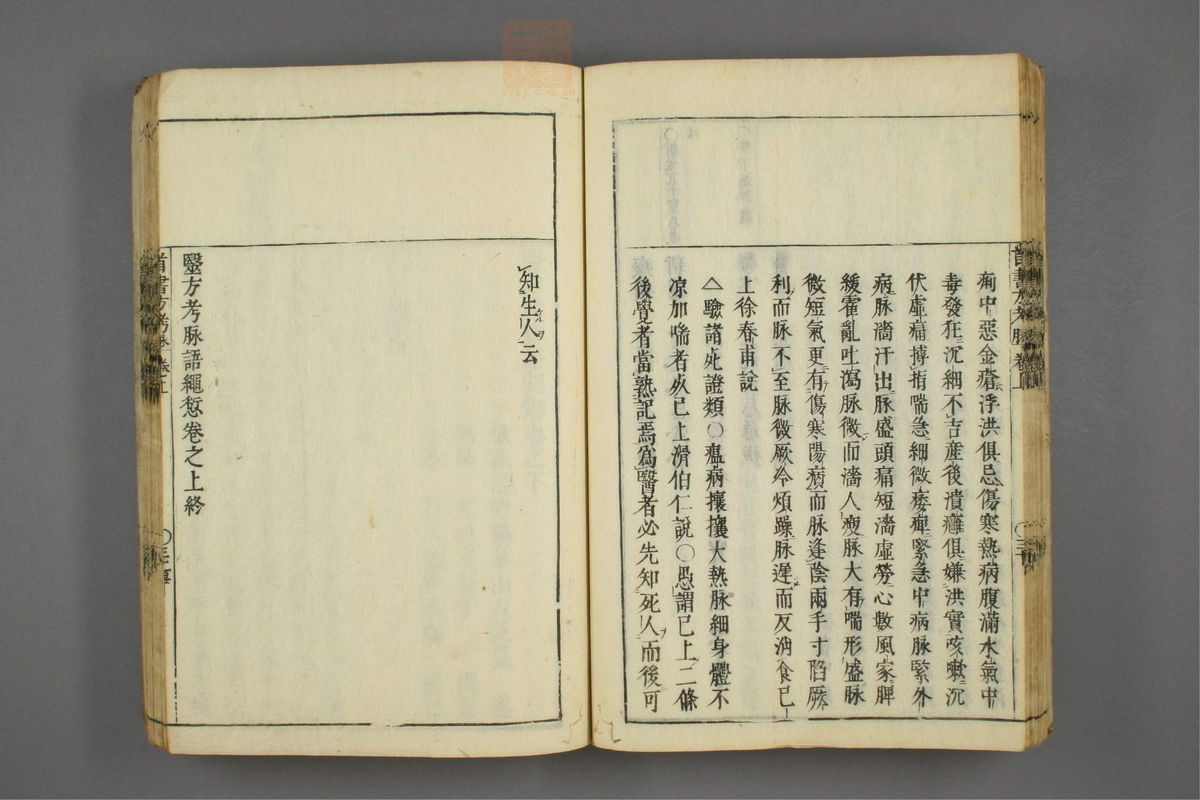 痢中惡金瘡浮洪俱忌傷寒熱病腹滿水氣中
毒發狂沉細不吉産後潰癰俱嫌洪實咳嗽沉
伏虛痛搏指喘急細微痿痺緊急中病脉緊外
病脉濇汗出脉盛頭痛短濇虛勞心數風家脾
緩霍亂吐瀉脉微而濇人瘦脉大有喘形盛脉
微短氣更有傷寒陽病而脉逢陰兩手寸陷厥
利而脉不至脉微厥冷煩躁脉遲而反消食已
上徐春甫說
△驗諸死證類〇瘟病攘攘大熱脉細身體不
凉加喘者死已上滑伯仁說〇愚謂已上二條
後覺者當熟記焉爲醫者必先知死人而後可
首書方考脉 卷上
〇三十
知生人云
毉方考脉語繩愆卷之上終
首書方考脉 卷上
zysj.com.cn